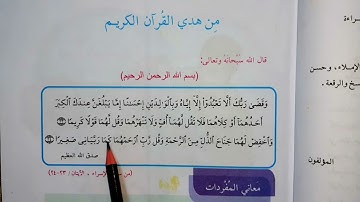 سراءة
الإملاء، وحسن
سخ والرقعة.
المؤلفون
مِن هدي القُرآن الكريم
قال الله سُبْحَانَهُ وتعالى:
(بسم الله الرحمن الرحيم)
وَقَضَى رَبُّكَ أَلَّا تَعْبُدُوٓا۟ إِلَّآ إِيَّاهُ وَبِالْوَالِدَيْنِ إِحْسَانًا إِمَّا يَبْلُغَنَّ عِندَكَ الْكِبَرَ
أَحَدُهُمَآ أَوْ كِلَاهُمَا فَلَا تَقُل لَّهُمَآ أُفٍّ وَلَا تَنْهَرْهُمَا وَقُل لَّهُمَا قَوْلًا كَرِيمًا ۝٢٣
وَاخْفِضْ لَهُمَا جَنَاحَ الذُّلِّ مِنَ الرَّحْمَةِ وَقُل رَّبِّ ارْحَمْهُمَا كَمَا رَبَّيَانِي صَغِيرًا ۝٢٤
صدق الله العظيم
(من سورة الإسراء ، الآيتان / ٢٣-٢٤)
معاني المُفْرَدات